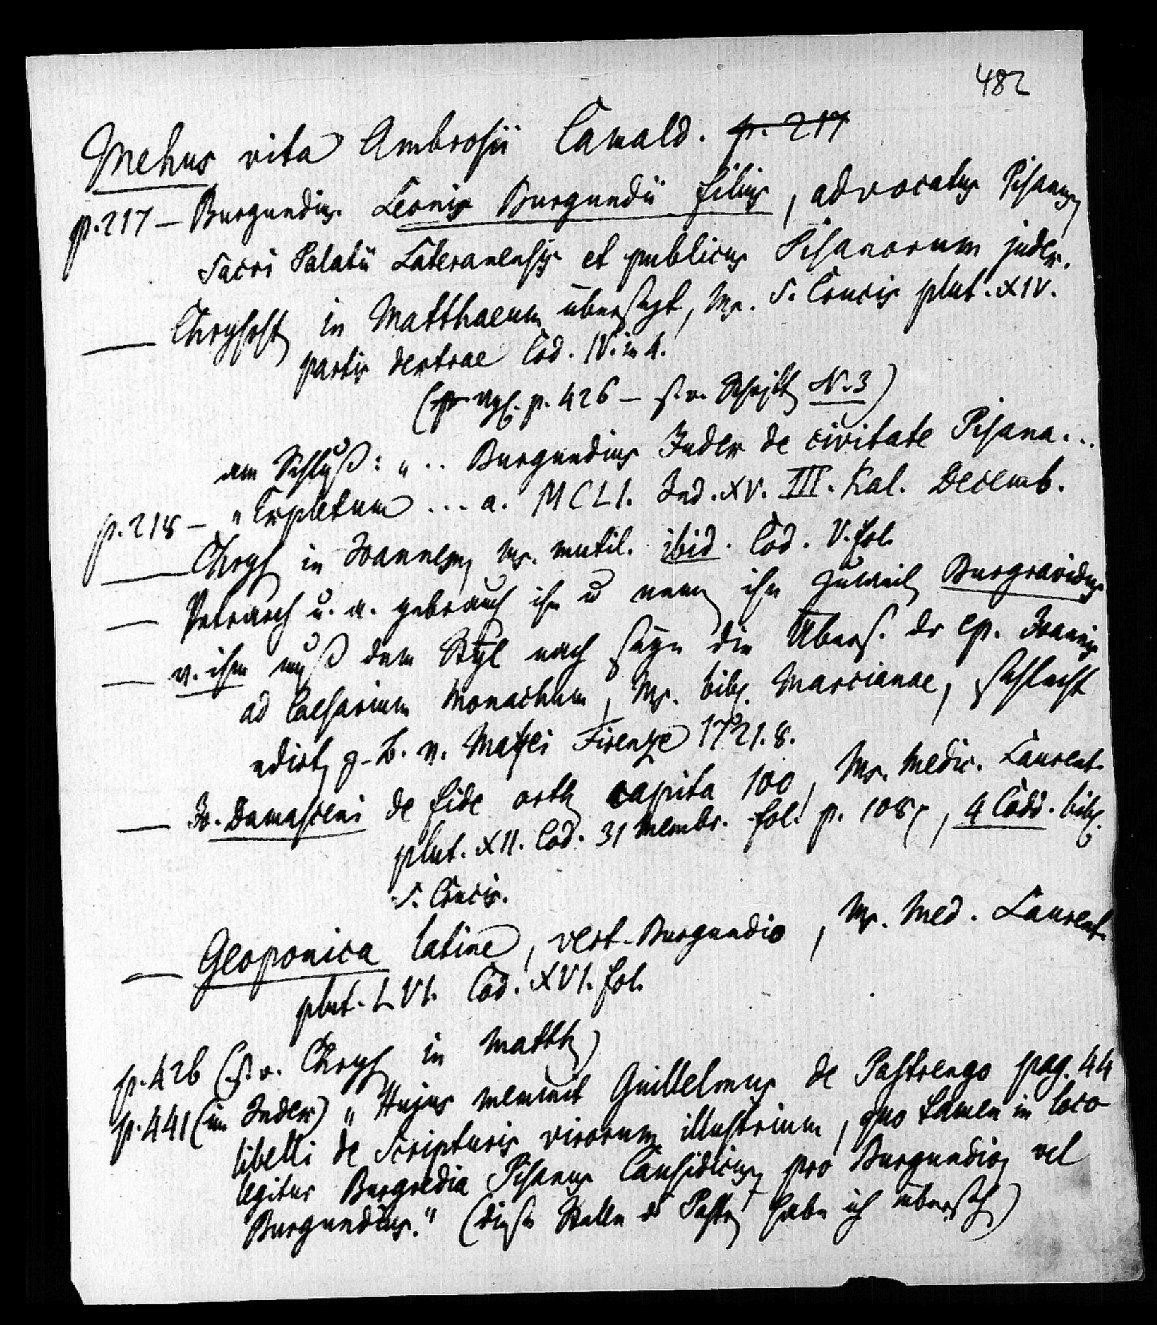 482
Mehus vita Ambrosii Camald. p. 217
p. 217 — Burgundius Leonis Burgundii filius, advocatus Pisanus
sacri Palatii Lateranensis et publicus Pisanorum judex.
— Chrysost in Matthaeum übersezt, Ms. S. Crucis plut. XIV.
partis dextrae Cod. IV. in 4.
(vgl. p. 426 — s. v. Schrift N. 3)
am Schluß: „ .. Burgundius Judex de civitate Pisana...
p. 218 — „Expletum ... a. MCLI. Ind. XV. III. Kal. Decemb.
— Chrys in Ioannem, Ms. mutil. ibid. Cod. V. fol.
— Petrarch u. a. gebrauch ihn u nenn ihn zuweil Burgravidus
— v. ihm muß dem Styl nach seyn die Übers. der ep. Ioannis
ad Caesarium Monachum, Ms. bibl. Marcianae, schlecht
edirt z. B. v. Maffei Firenze 1721. 8.
— Io. Damasceni de fide orth capita 100, Ms. Medic. Laurent.
plut. XII. Cod. 31 membr. fol. p. 108, 4 Codd. bibl.
S. Crucis.
— Geoponica latine, vert. Burgundio, Ms. Med. Laurent.
plut. LVI. Cod. XVI. fol.
p. 426 (s. v. Chrys in Matth)
p. 441 (im Index) „Hujus meminit Guillelmus de Pastrengo pag. 44
libelli de Scripturis virorum illustrium, quo tamen in loco
legitur Burgredia Pisanus Causidicus, pro Burgundio, vel
Burgundius." (diese Stelle d Pastr habe ich übersch)